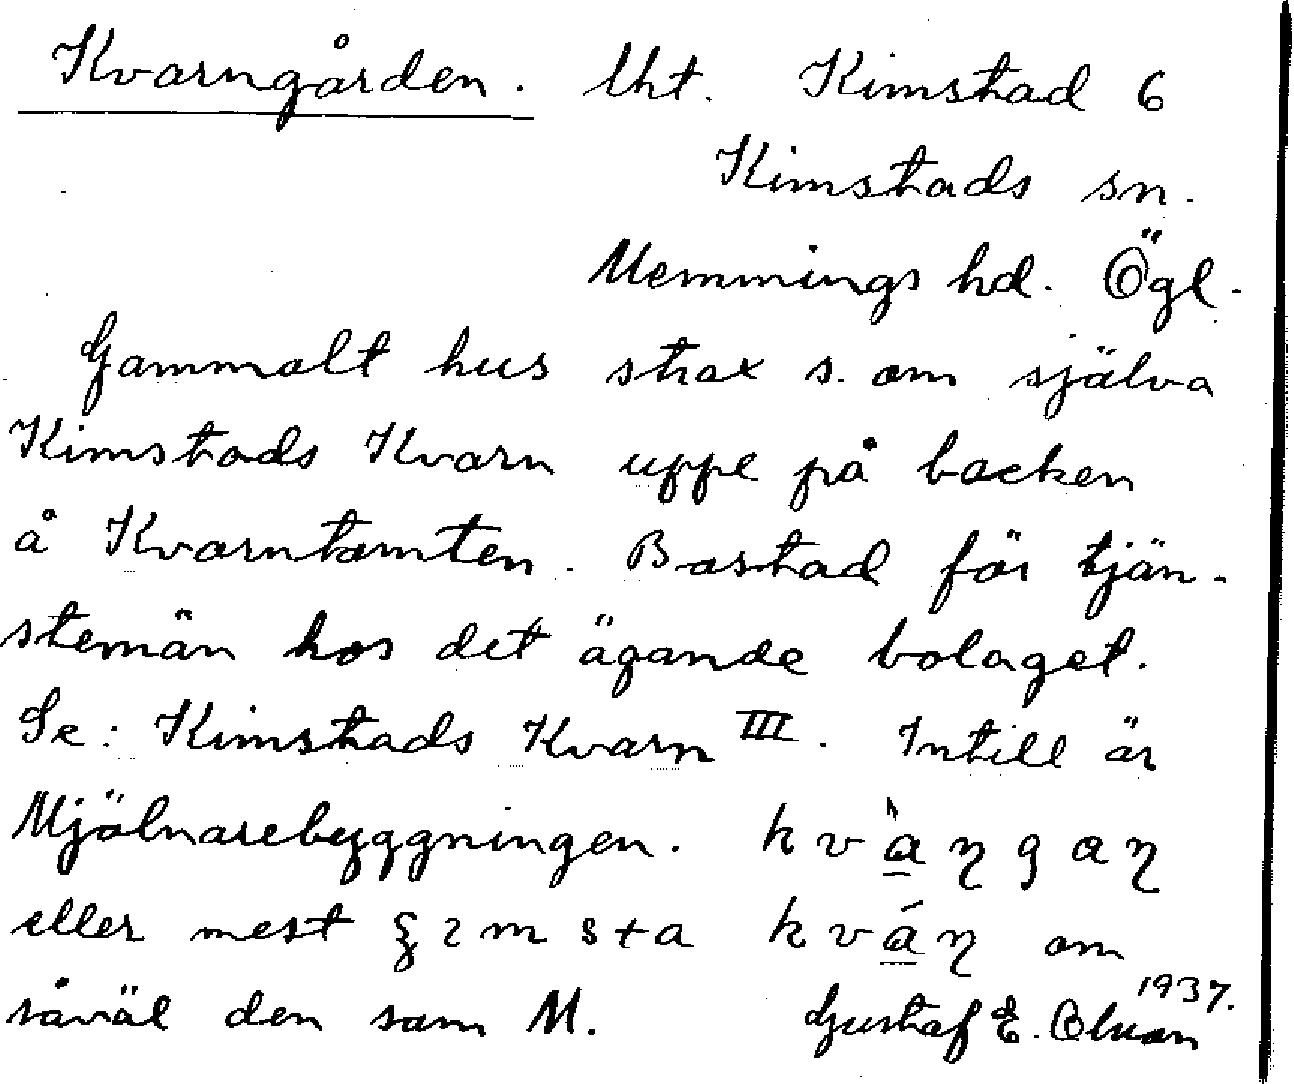 Kvarngården. Uht. Kimstad 6
Kimstads sn.
Memmings hd. Ögl.
Gammalt hus strax s. om själva
Kimstads Kvarn uppe på backen
å Kvarntomten. Bostad för tjän-
stemän hos det ägande bolaget.
Se: Kimstads Kvarn III. Intill är
Mjölnarebyggningen.
eller mest om
såväl den som M. 1937.
Gustaf E. Olson